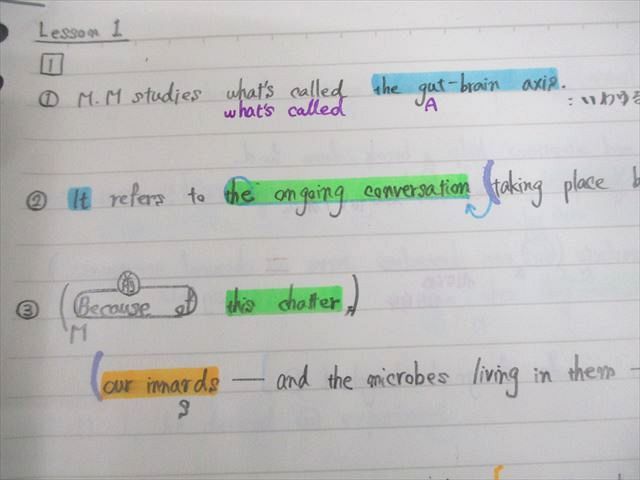 Lesson 1
1
① M.M studies what's called the gut-brain axis.
what's called A :いわゆる
② It refers to the ongoing conversation (taking place b
前
③ (Because of this chatter,)
M
(our innards — and the microbes living in them —
S